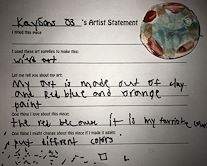 Kaysan 03 's Artist Statement
I titled this piece:
I used these art supplies to make this:
wire art
Let me tell you about my art:
My art is made out of clay
and red blue and orange
paint
One thing I love about this piece:
the red because it is my favorite color
One thing I might change about this piece if I made it again:
put different colors